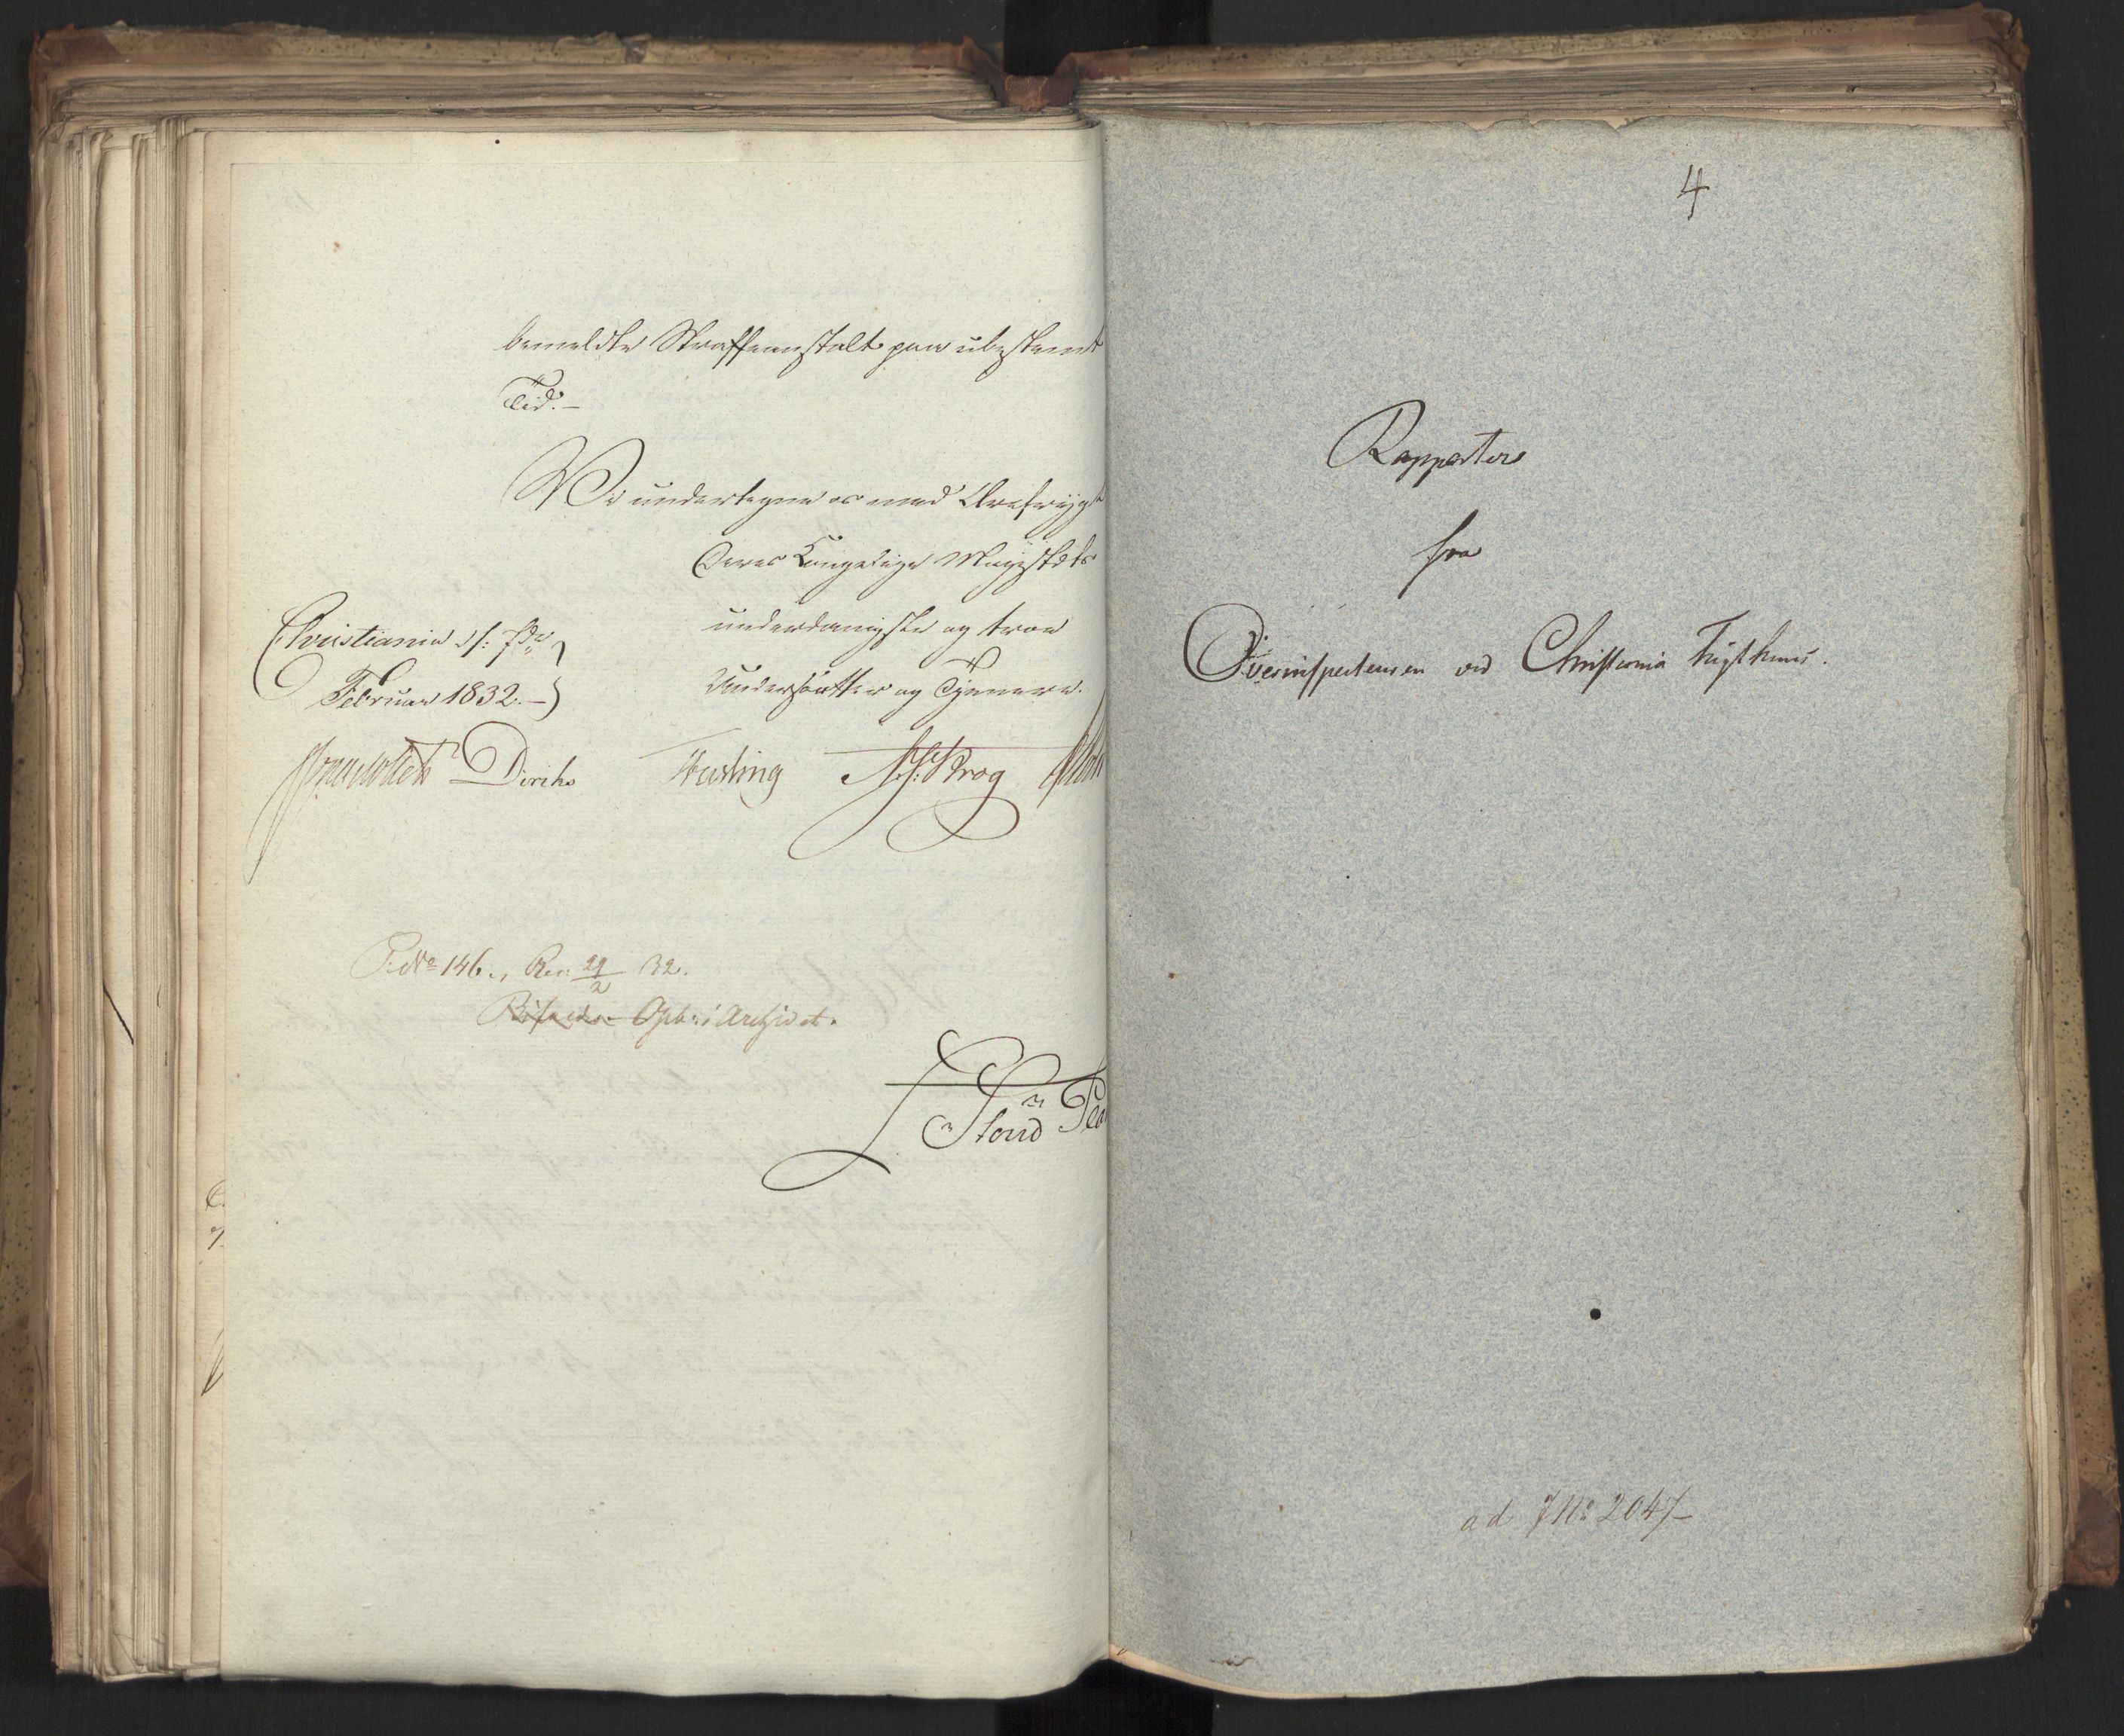 bemeldte Straffeanstalt paa ubestemt
Tid.—
Vi undertegne os med Ærefrygt
Deres Kongelige Majestæts
underdanigste og troe
Undersaatter og Tjenere.
Christiania d: 7de
Februar 1832.—
Diriks
Krog
P: No 146., Res: 29/2 32.
Opb: i Archivet.
4
Rapporter
fra
Overinspecteuren ved Christiania Tugthuus.
ad JNo 2047